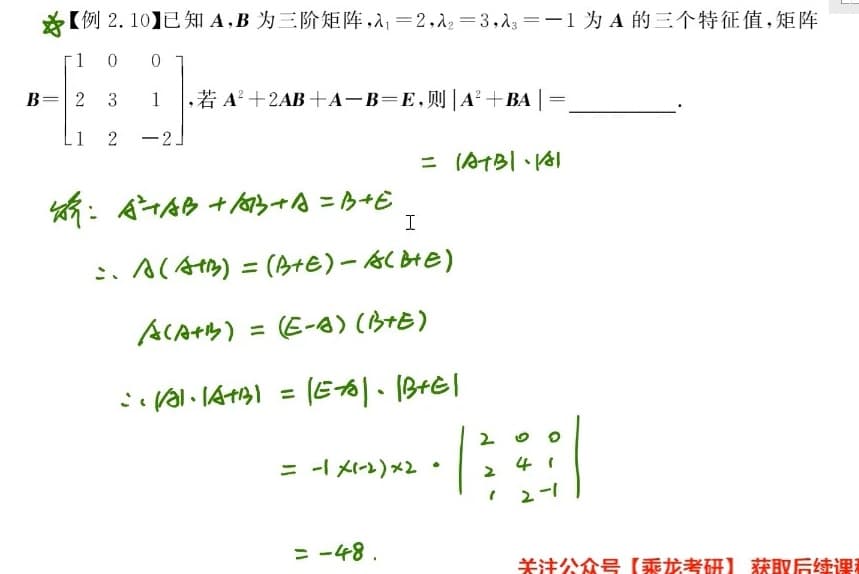 【例 2.10】已知 A,B 为三阶矩阵,λ₁=2,λ₂=3,λ₃=-1 为 A 的三个特征值,矩阵
B=[1 0 0; 2 3 1; 1 2 -2],若 A²+2AB+A-B=E,则|A²+BA|=________.
= |A+B|·|A|
解: A²+AB+AB+A=B+E
∴ A(A+B)=(B+E)-A(B+E)
A(A+B)=(E-A)(B+E)
∴ |A|·|A+B| = |E-A|·|B+E|
= -1×(-2)×2·|2 0 0; 2 4 1; 1 2 -1|
= -48.
关注公众号【乘龙考研】 获取后续课